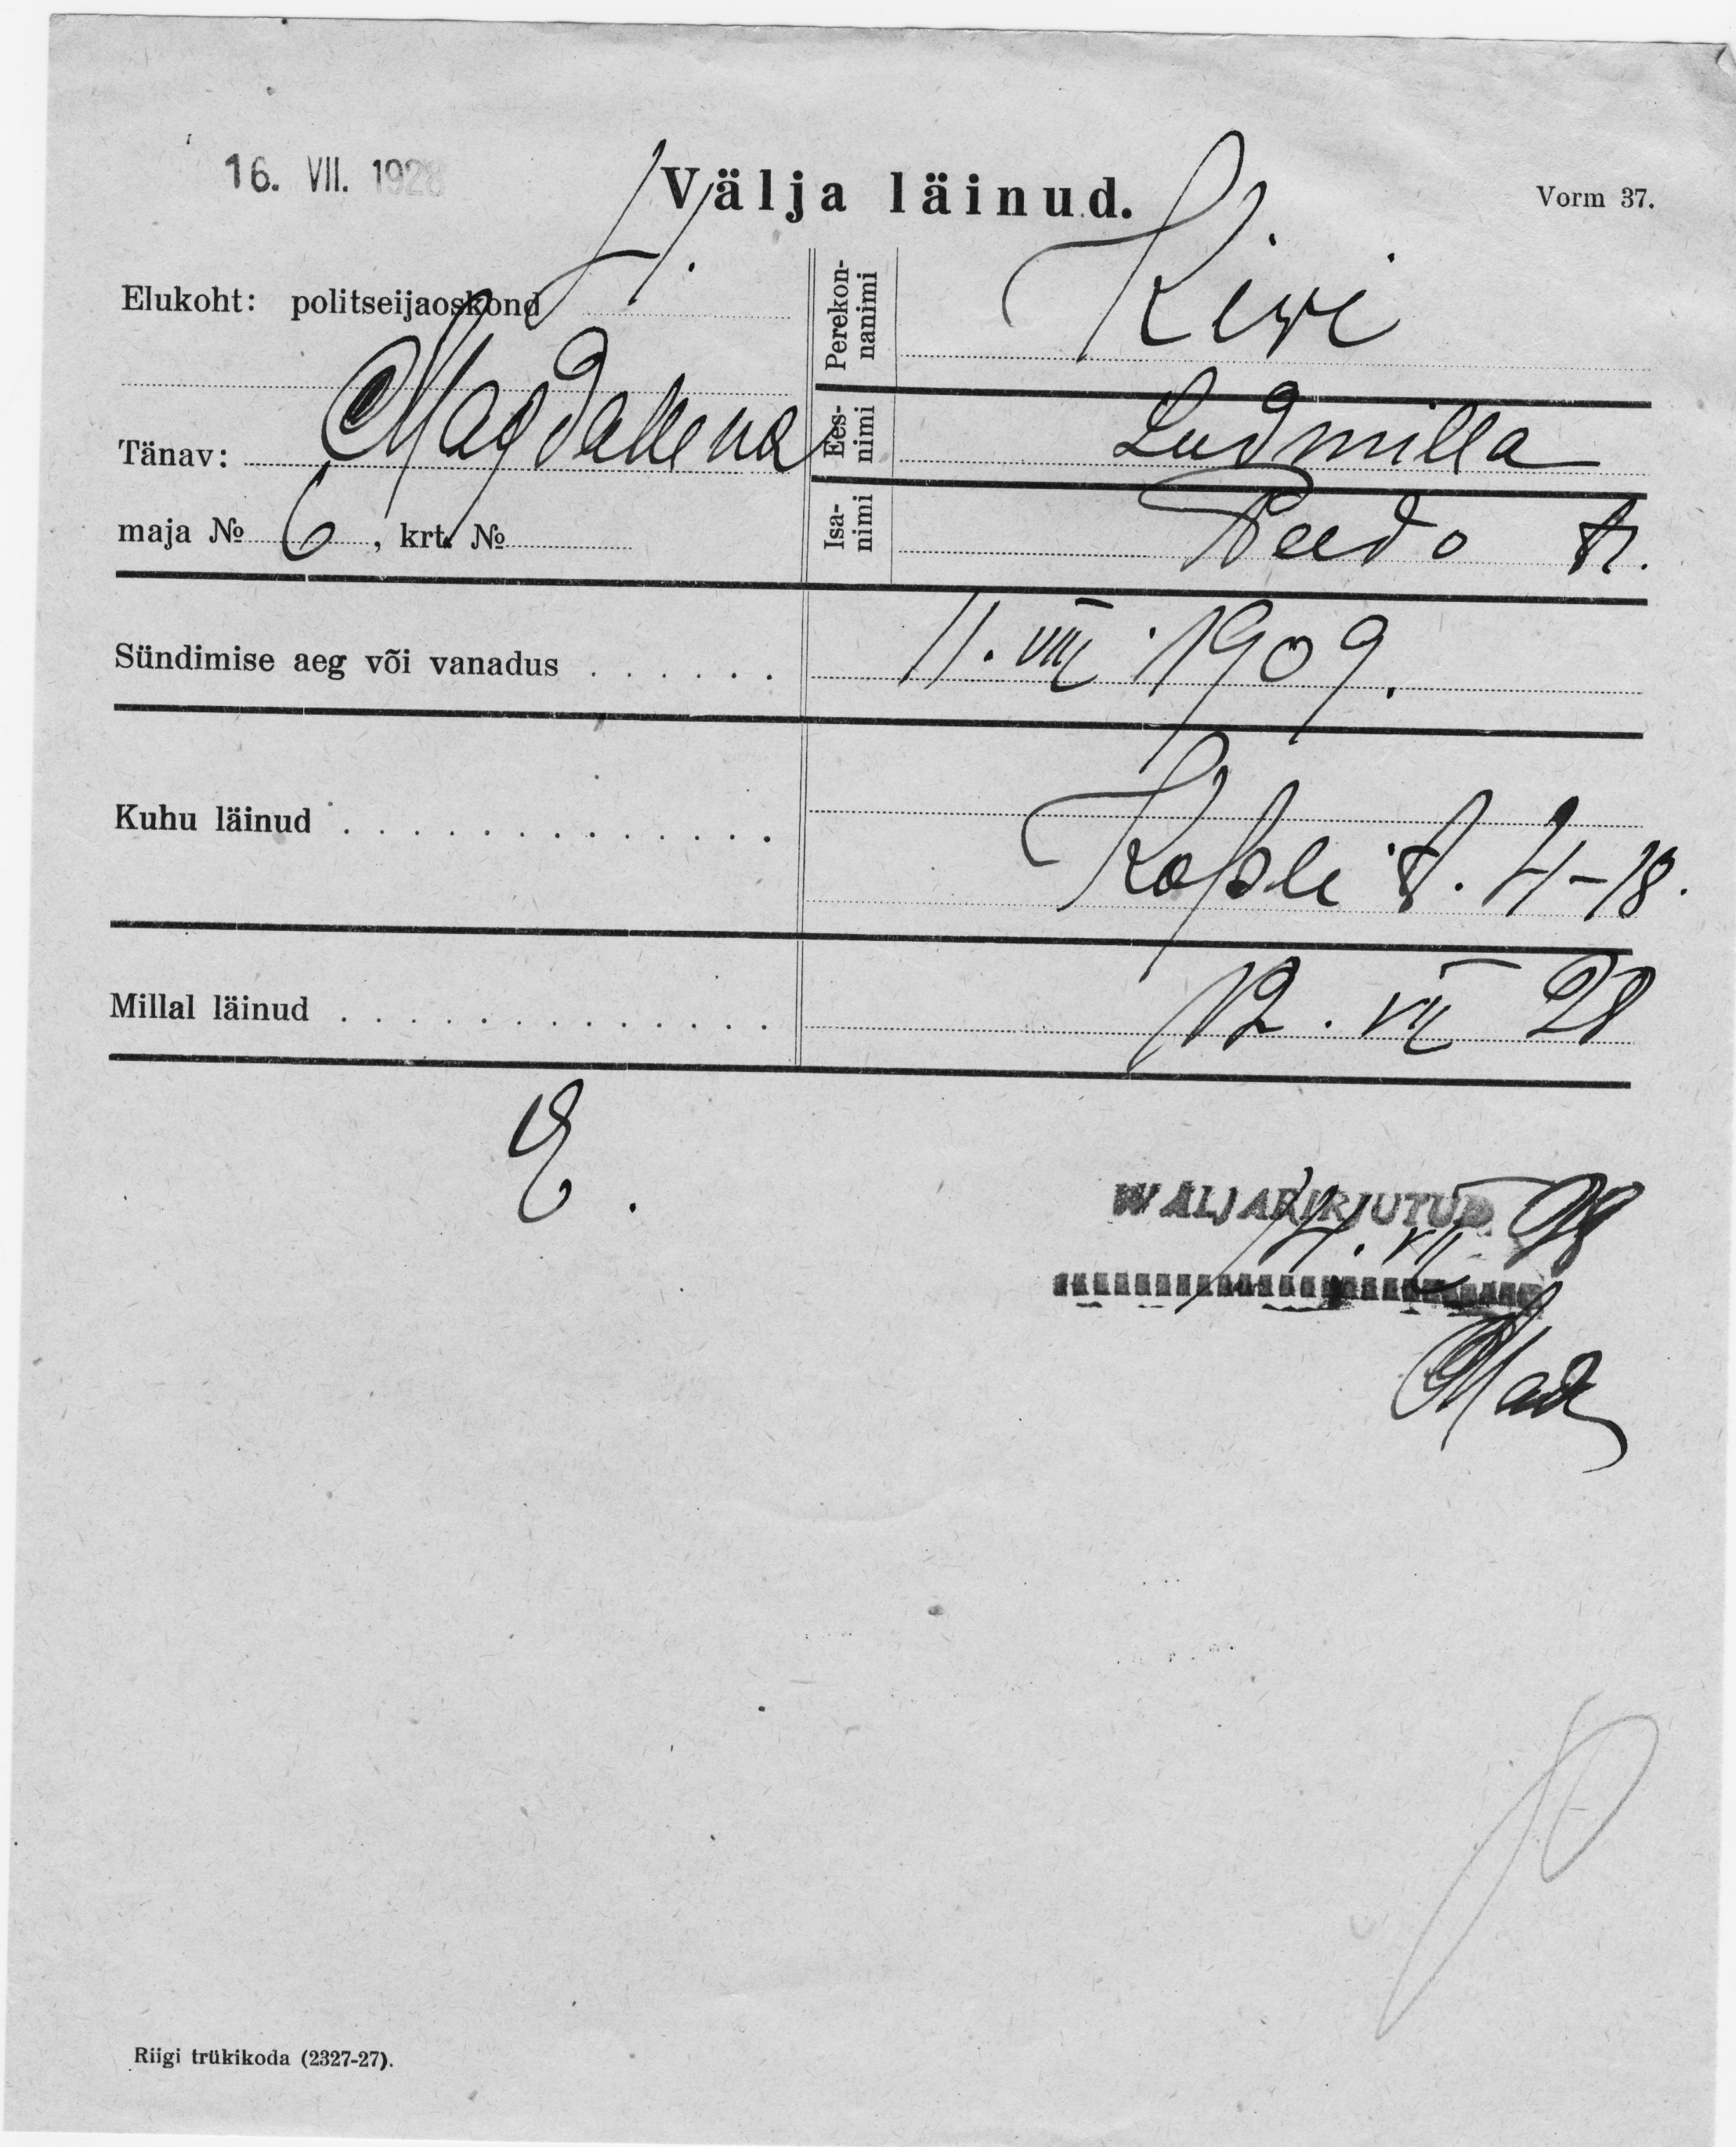 16. VII. 1928
Välja läinud.
Vorm 37.
Elukoht: politseijaoskond 4.
Tänav: Magdaleena
maja № 6, krt. №
Perekon-
nanimi
Kivi
Ees-
nimi
Ludmilla
Isa-
nimi
Peedo t.
Sündimise aeg või vanadus . . . . . . 11. VIII. 1909.
Kuhu läinud . . . . . . . . . . . . .
Kopli t. 4-18.
Millal läinud . . . . . . . . . . . . . 12. VII 28
WÄLJAKIRJUTUD
14. VII 28
Riigi trükikoda (2327-27).